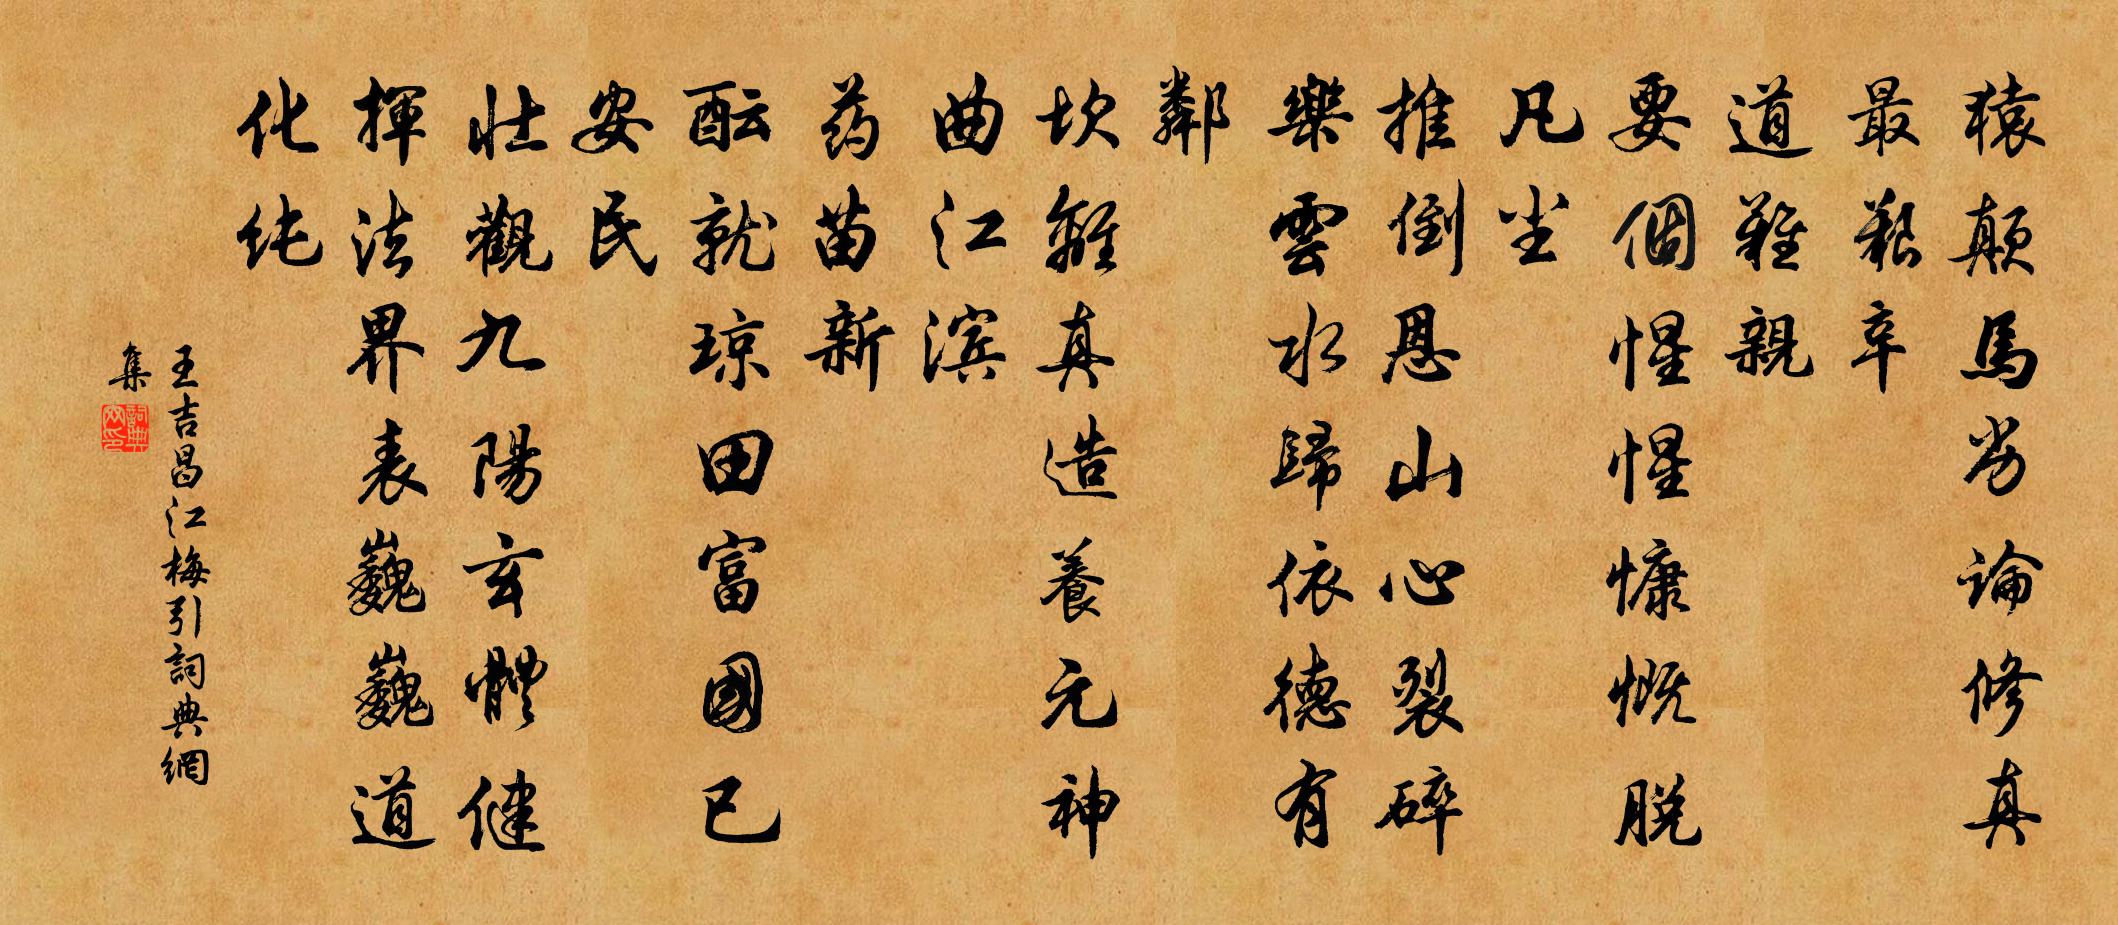 猿顛馬劣論修真
最艱辛
道難親
要個惺惺慷慨脫
凡尘
推倒恩山心裂碎
樂雲水歸依德有
鄰
坎離真造養元神
曲江滨
药苗新
酝就琼田富國已
安民
壯觀九陽玄體健
揮法界表巍巍道
化纯
王吉昌江梅引詞典網
集
詞典
网印